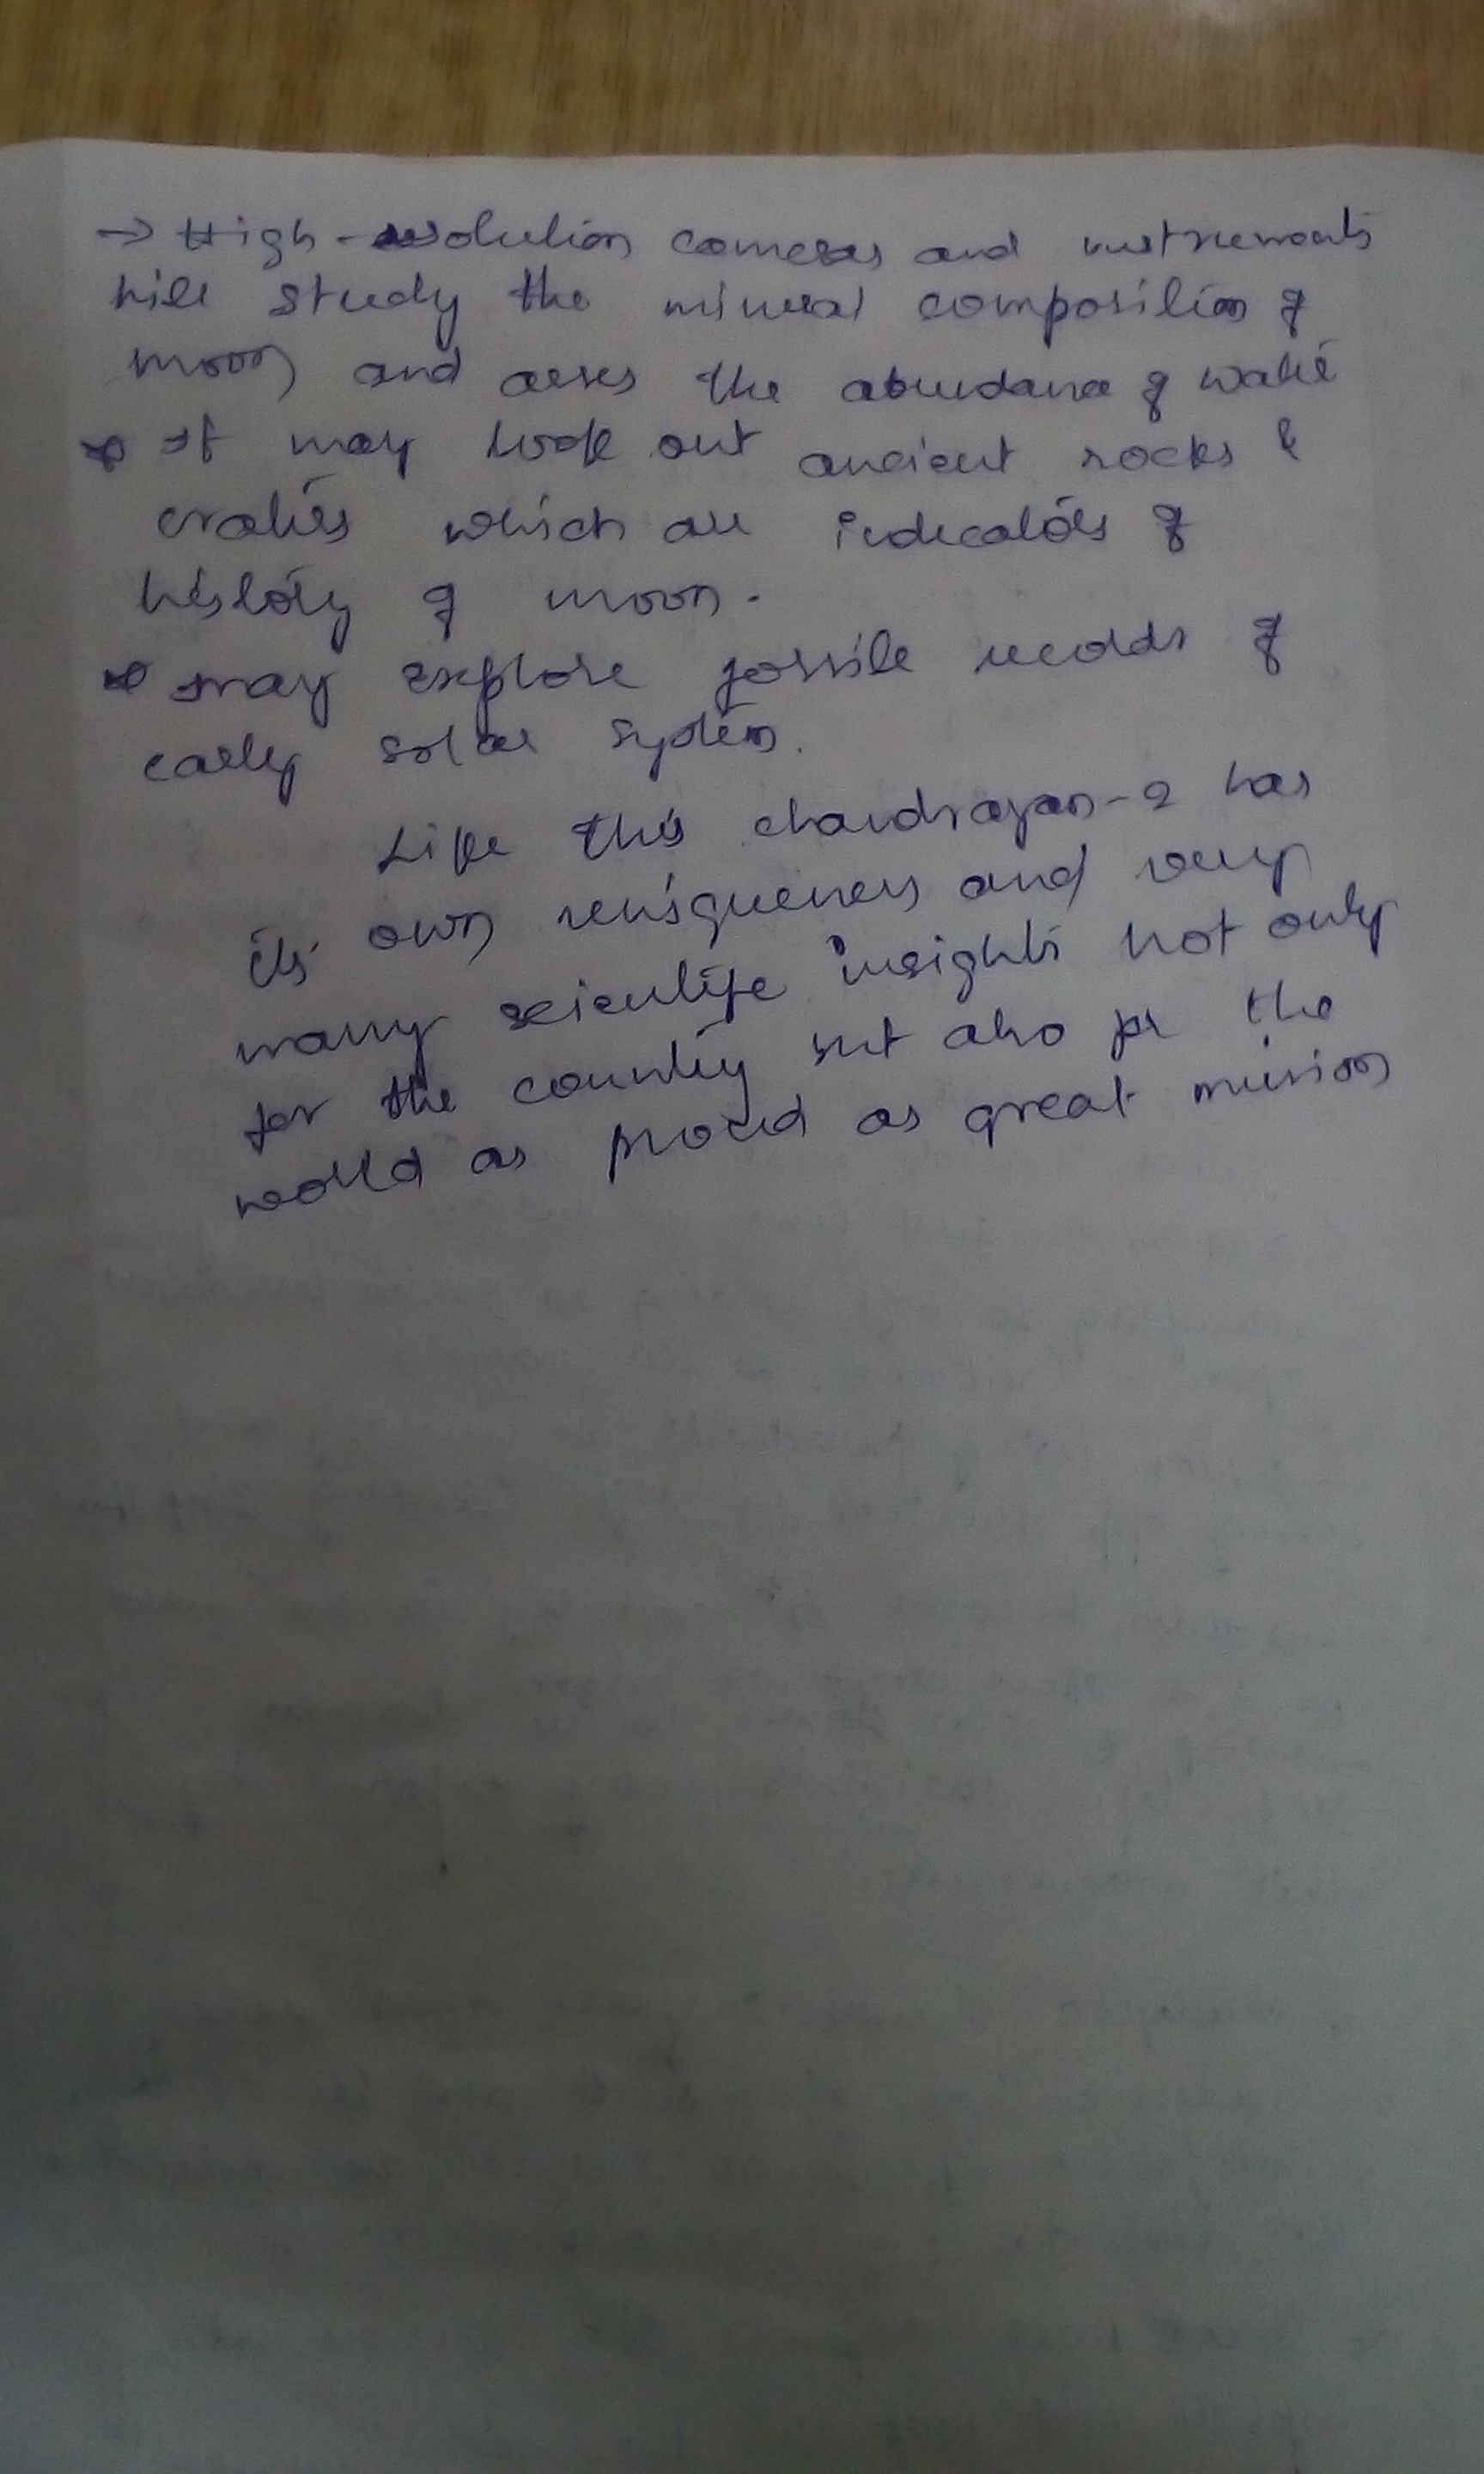 → High-resolution cameras and instruments
will study the mineral composition of
moon and asses the abundance of water
It may look out ancient rocks &
craters which are indicators of
history of moon.
may explore fossile records of
early solar system.
Like this chandrayan-2 has
its own uniqueness and very
many scientife insights not only
for the country but also for the
world as proud as great mission